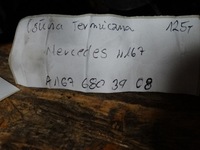 Osłona Termiczna 125,-
Mercedes W167
A167 680 39 08